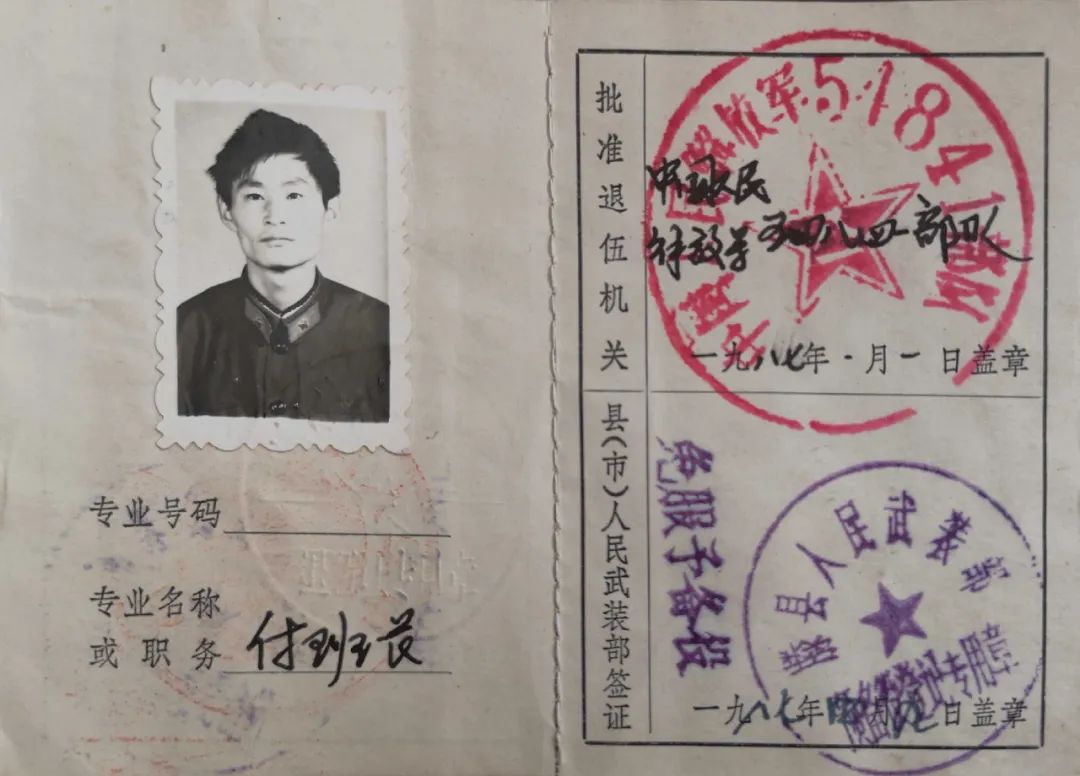 专业号码
专业名称
或职务 付班长
批准退伍机关
中国人民
解放军五四八四一部队
一九八七年一月一日盖章
中国人民解放军51841部队
县(市)人民武装部签证
免服予备役
县人民武装部
专用章
一九八七年 月 日盖章